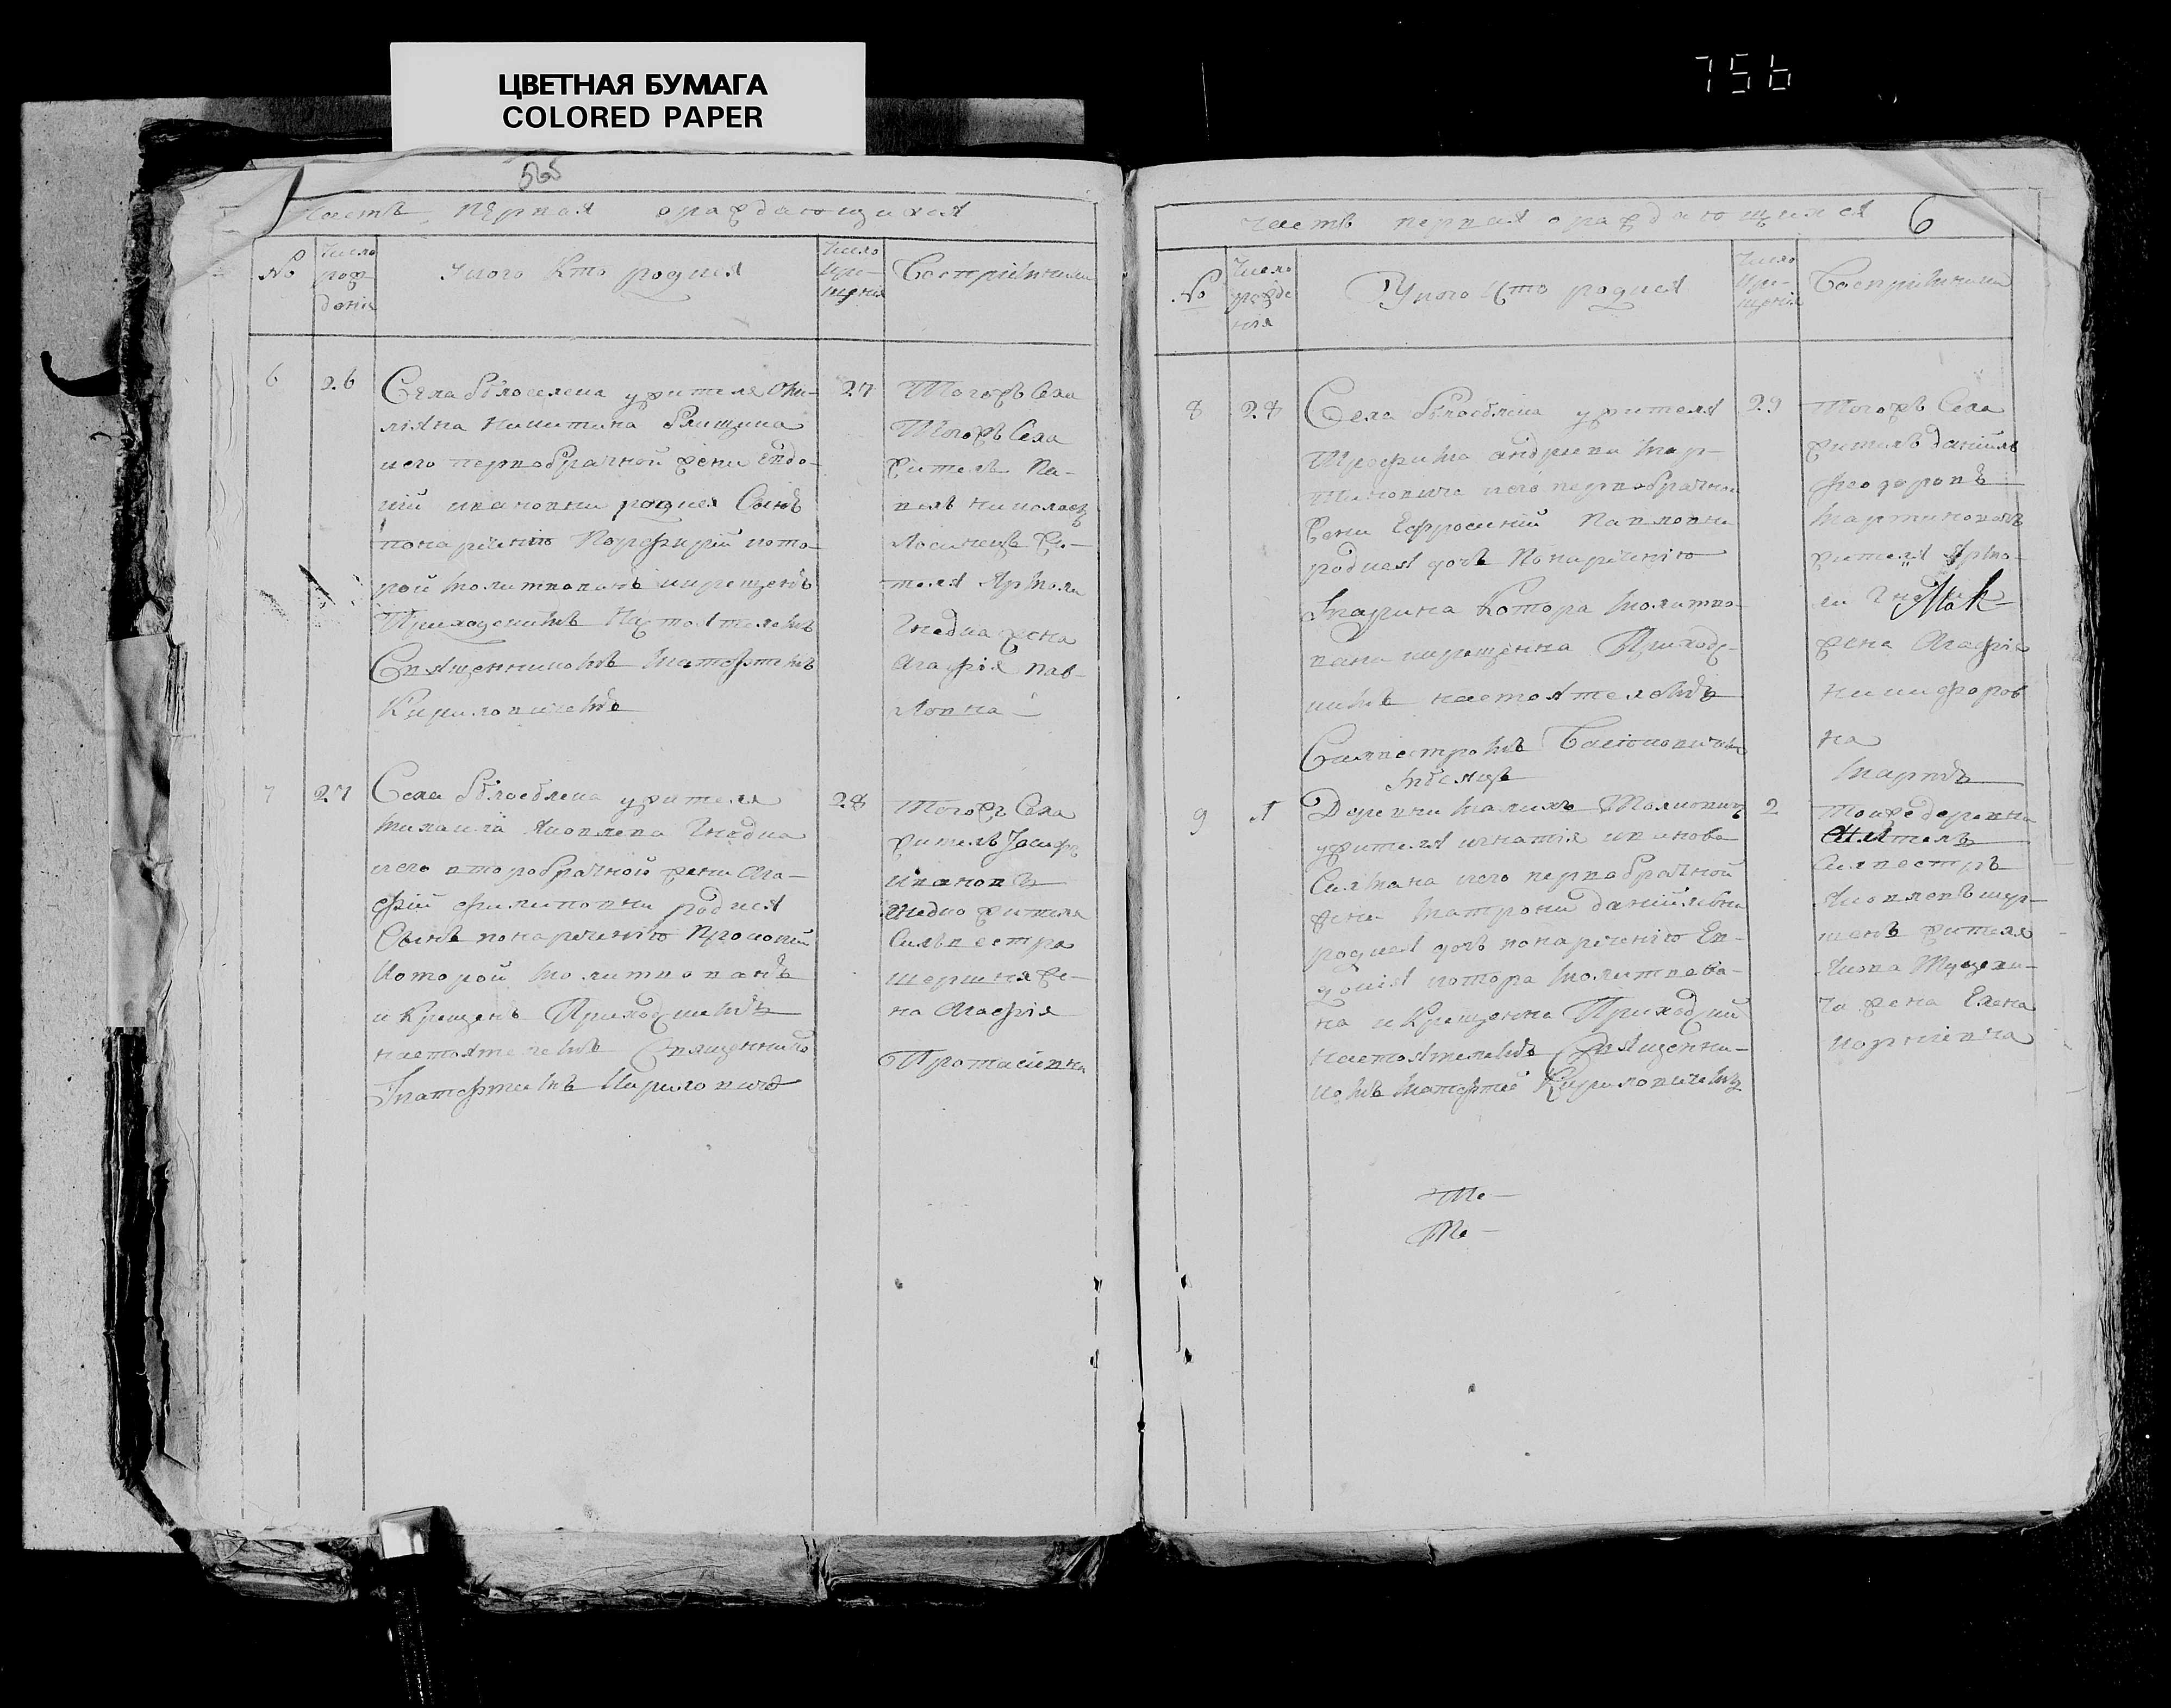 ЦВЕТНАЯ БУМАГА
COLORED PAPER
756
565
Часть первая ораждающихся
№
Число рож-дения
Укого кто родися
Число кре-щения
Восприемники
6
26
Села Белоселена ужителя
лияна Никитина
иего первобрачной жени Евдо-
кий ивановни родися Синъ
понаречению Порфирий кото-
рой молитвованъ икрещенъ
Приходскимъ Настоятелемъ
Священникомъ Матфтемъ
Кириловичемъ
27
Тогожъ Села
Тогожъ Села
Житель Па-
велъ николаев
жи-
теля Ярмоли
Гнедиа жена
Агафия пав-
ловна
7
27
Села Белоселена ужителя
михаила Яковлева Гнедиа
иего второбрачной жени Ага-
фий филиповни родися
Синъ понаречению Прокопий
которой молитвованъ
и Крещенъ Приходскимъ
настоятелемъ Священнико
Матфтемъ Кириловичем
28
Тогожъ Села
житель Јосифъ
ивановъ
Гнедио жителя
Силвестра
жe-
на Агафия
Протасиевна
часть первая ораждающихся
6
№
Число рожде ния
Укого Кто родися
Число кре-щения
Восприемники
8
28
Села Белоселена ужителя
Трофима андреева мар-
тиновича иего первобрачной
Жени Ефросиний Павловни
родися дочь Понаречению
Марина Котора молитво-
вана икрещенна Приходс-
кимъ настоятелемъ
Силвестромъ
29
Тогожъ Села
житель даниилъ
феодоровъ
мартиновичъ
жителя Ярмо-
ли
жена Агафия
никифоров
на
мЬсяцъ
мартъ
9
1
Деревни
ужителя игнатия иванова
иего первобрачной
жени матрони данииловни
родися дочь понаречению Ев-
докия котора молитвова-
на и Крещенна Приходский
настоятелемъ Священни-
комъ матфтей Кириловичемъ
2
Тоижедеревни
житель
силвестръ
Яковлевъ
жителя
Якова
жена Елена
Те —
Те —